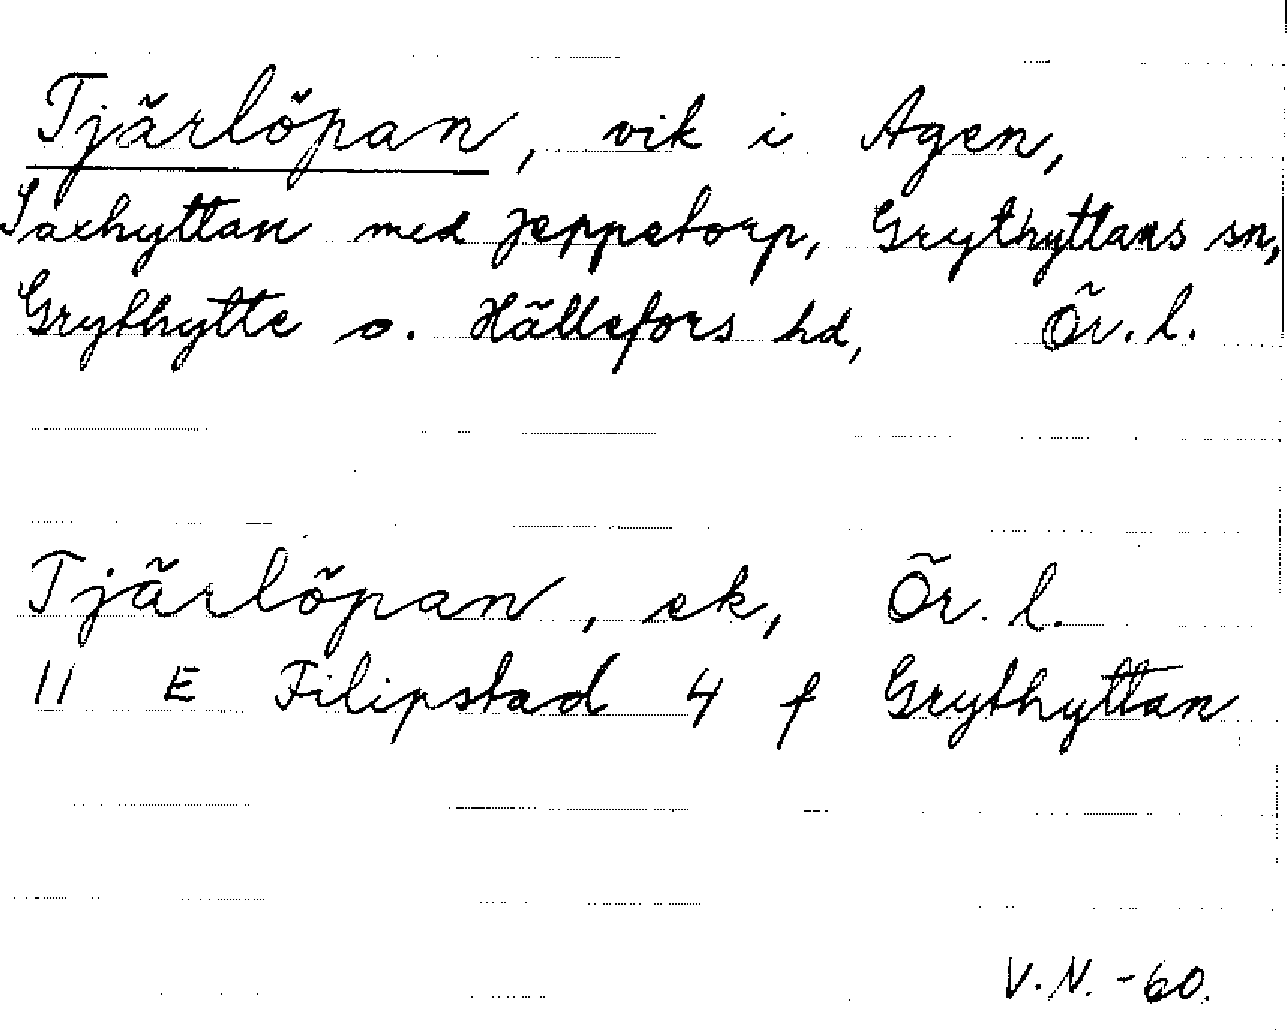 Tjärlöpan, vik i Agen,
Saxhyttan med Jeppetorp, Grythyttans sn,
Grythytte o. Hällefors hd, Ör. l.
Tjärlöpan, ek, Ör. l.
11 E Filipstad 4 f Grythyttan
V.N. -60.